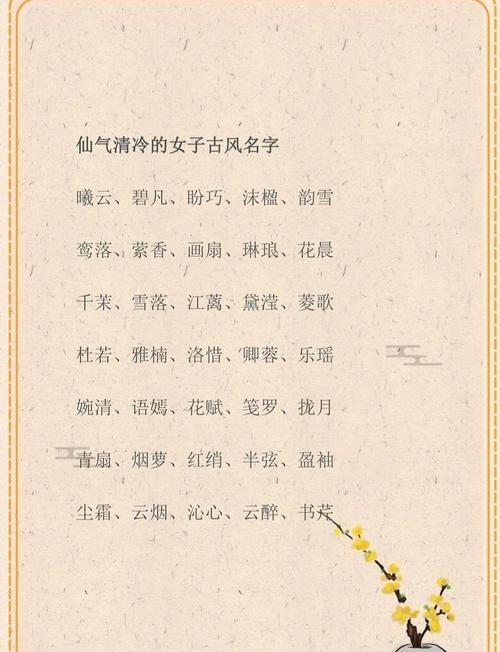 仙气清冷的女子古风名字
曦云、碧凡、盼巧、沫楹、韵雪
鸾落、萦香、画扇、琳琅、花晨
千茉、雪落、江蓠、黛滢、菱歌
杜若、雅楠、洛惜、卿蓉、乐瑶
婉清、语嫣、花赋、笺罗、拢月
青扇、烟萝、红绡、半弦、盈袖
尘霜、云烟、沁心、云醉、书芹